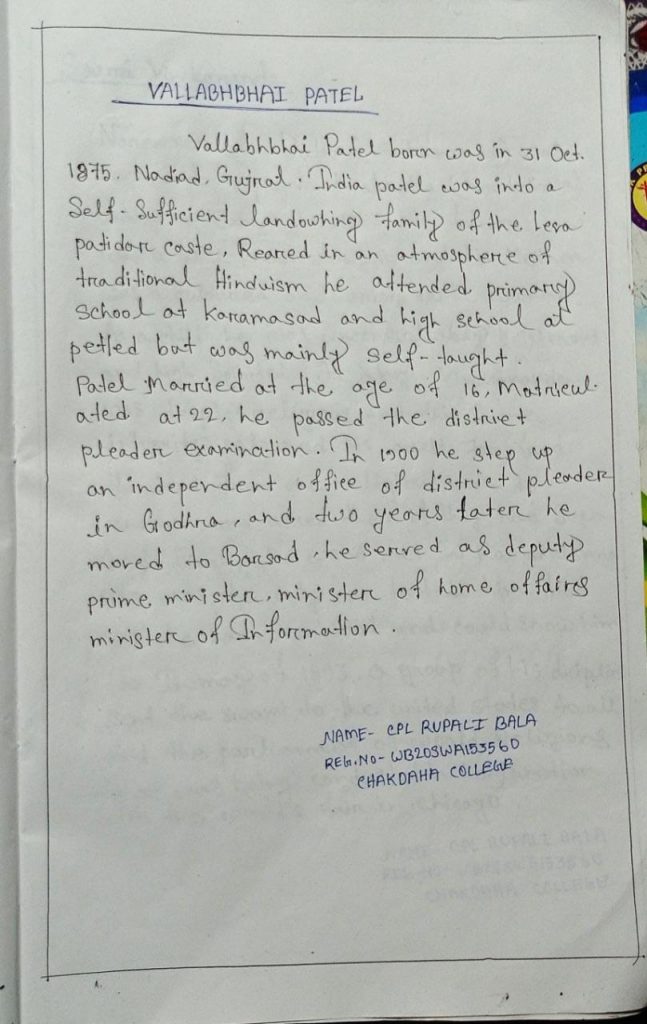 VALLABHBHAI PATEL
Vallabhbhai Patel born was in 31 Oct.
1875. Nadiad, Gujrat. India patel was into a
Self-Sufficient landowning family of the Leva
patidar caste, Reared in an atmosphere of
traditional Hinduism he attended primary
school at Karamasad and high school at
petled but was mainly self-taught.
Patel Married at the age of 16, Matricul-
ated at 22, he passed the district
pleader examination. In 1900 he step up
an independent office of district pleader
in Godhra, and two years later he
moved to Borsad, he served as deputy
prime minister, minister of home offaires
minister of Information.
NAME- CPL RUPALI BALA
REG.NO- WB20SWA153560
CHAKDAHA COLLEGE